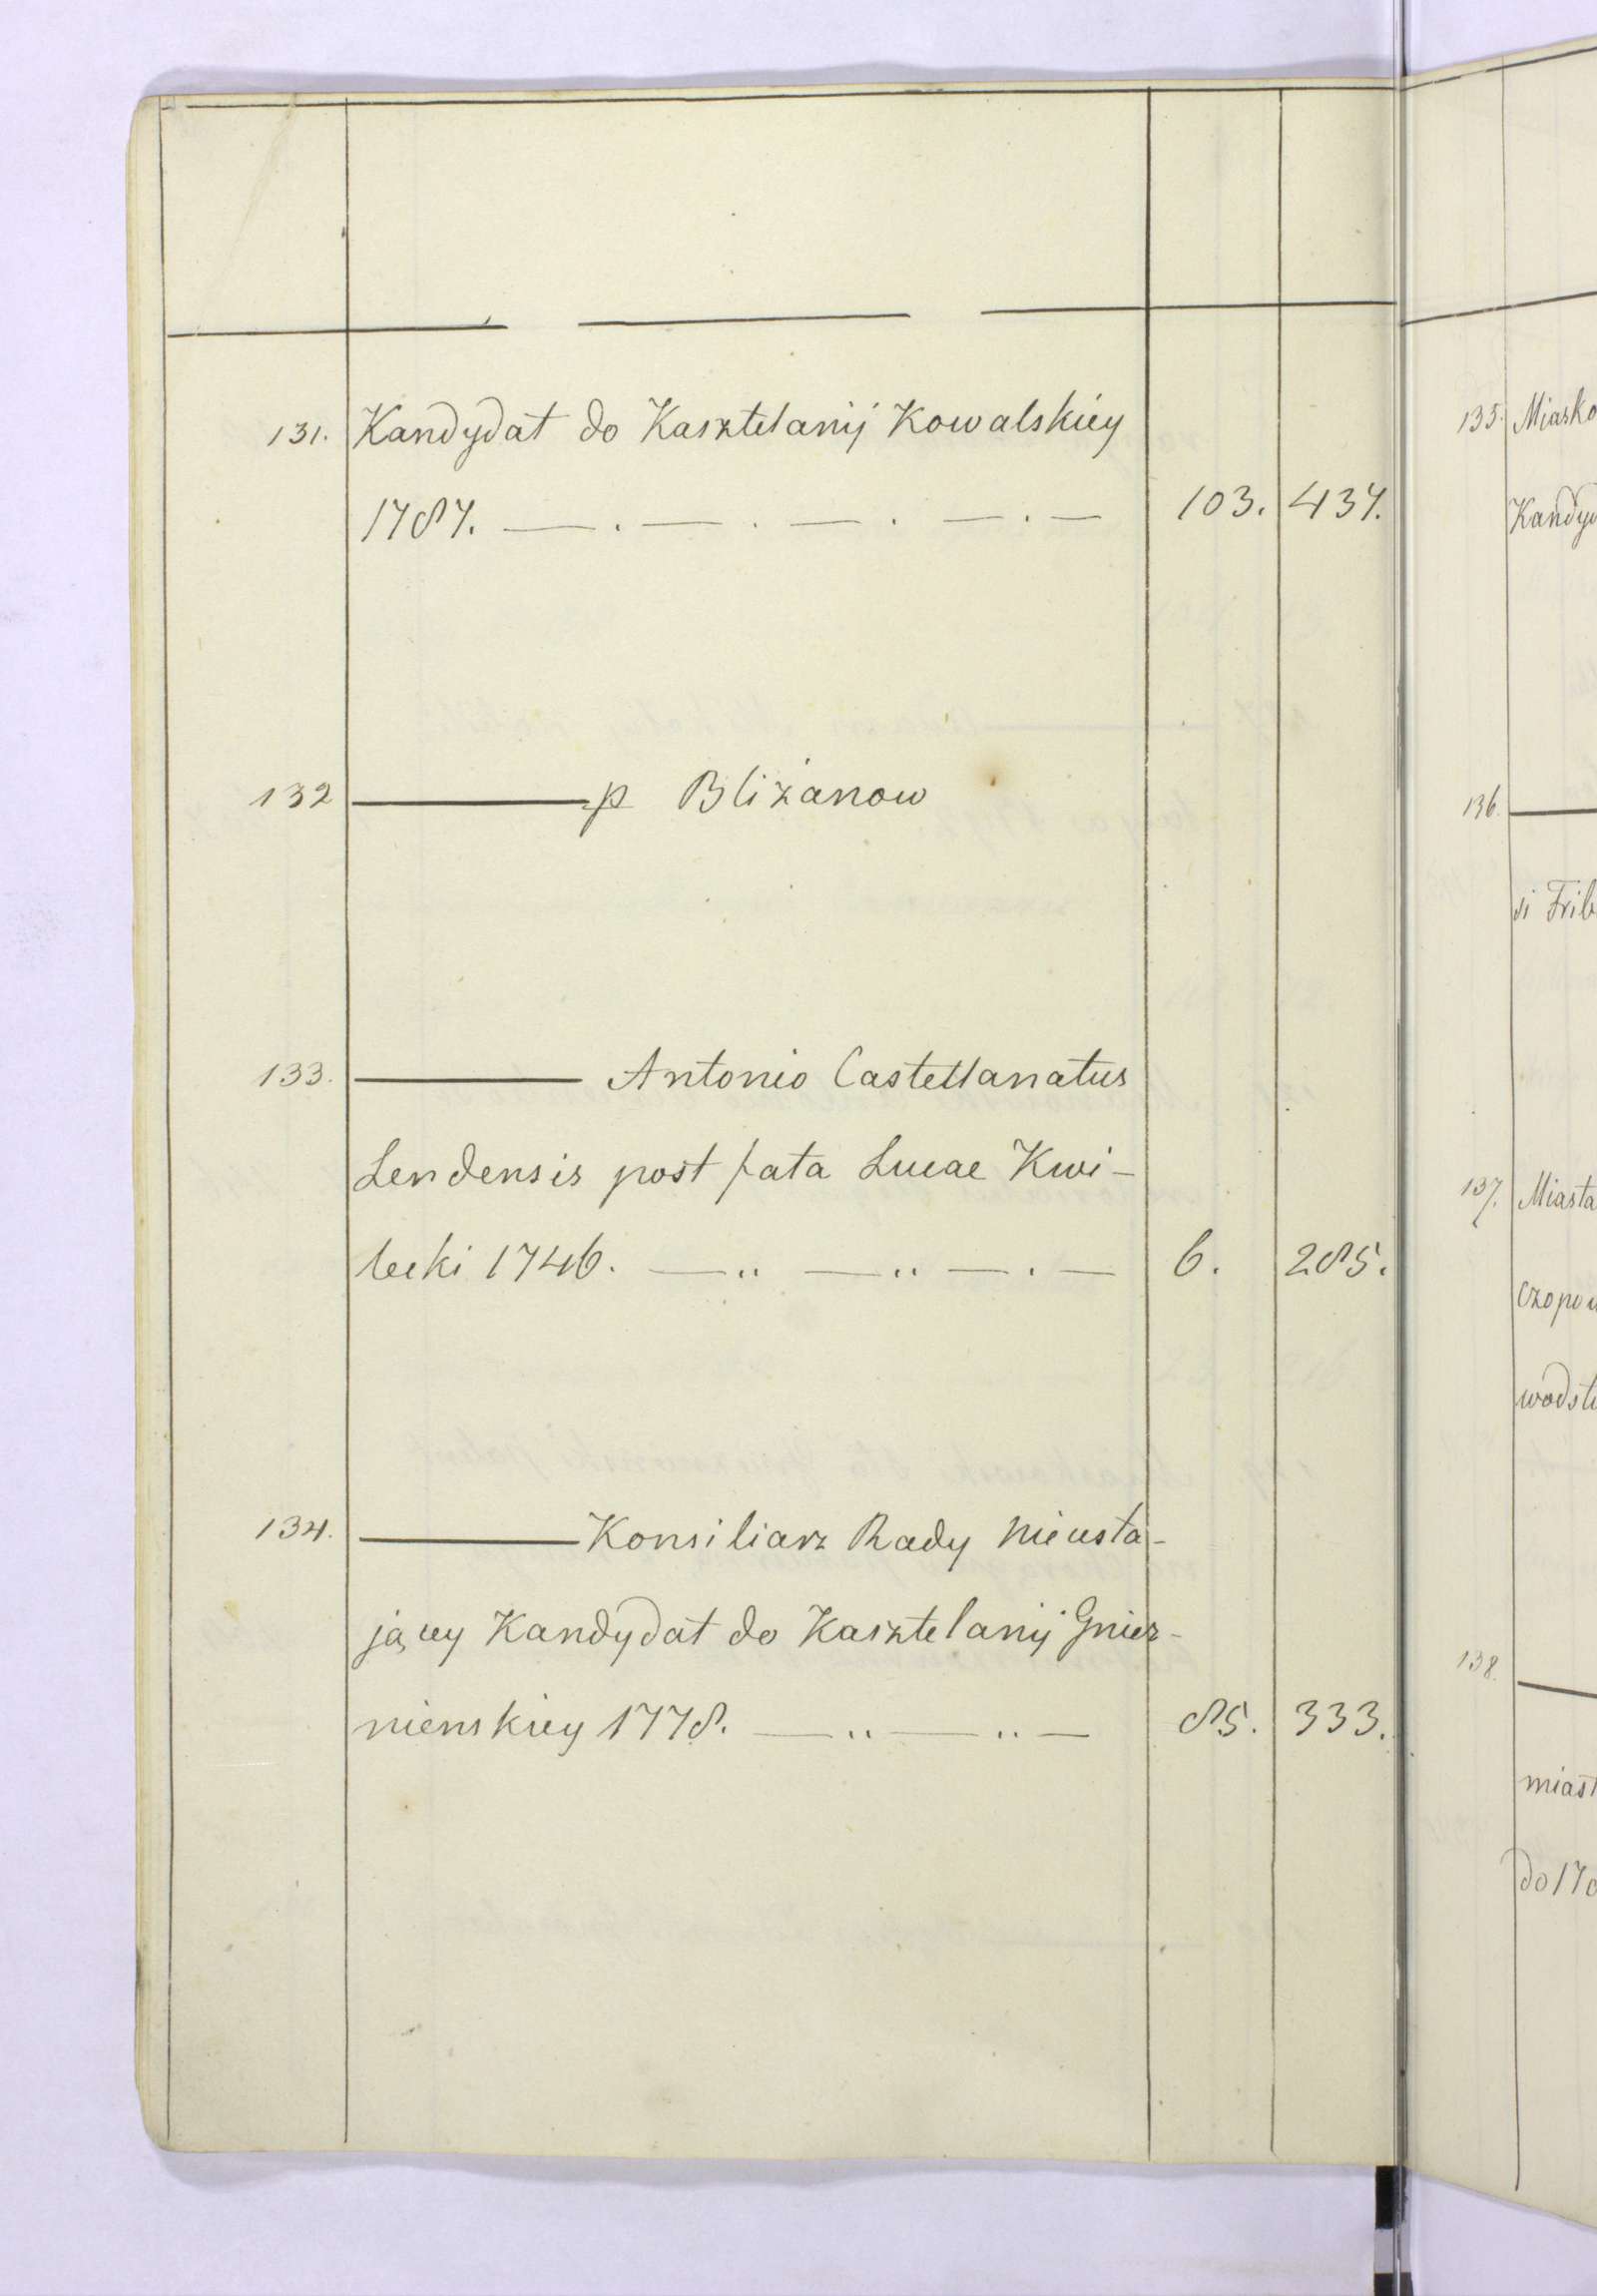 131. Kandydat do Kasztelanij Kowalskiey
1787. —.—.—.—.— 103. 437.
132 ——— p Bliżanow
133. ——— Antonio Castellanatus
Lendensis post fata Lucae Kwi-
lecki 1746. —..—..—.— 6. 285.
134. ——— Konsiliarz Rady nieusta-
jącey Kandydat do Kasztelanij Gniez-
nienskiey 1778. —..—..— 85. 333.
135. Miasko
Kandyd
136.
si Trib
137. Miasta
czopow
wodst
138.
miast
do 17